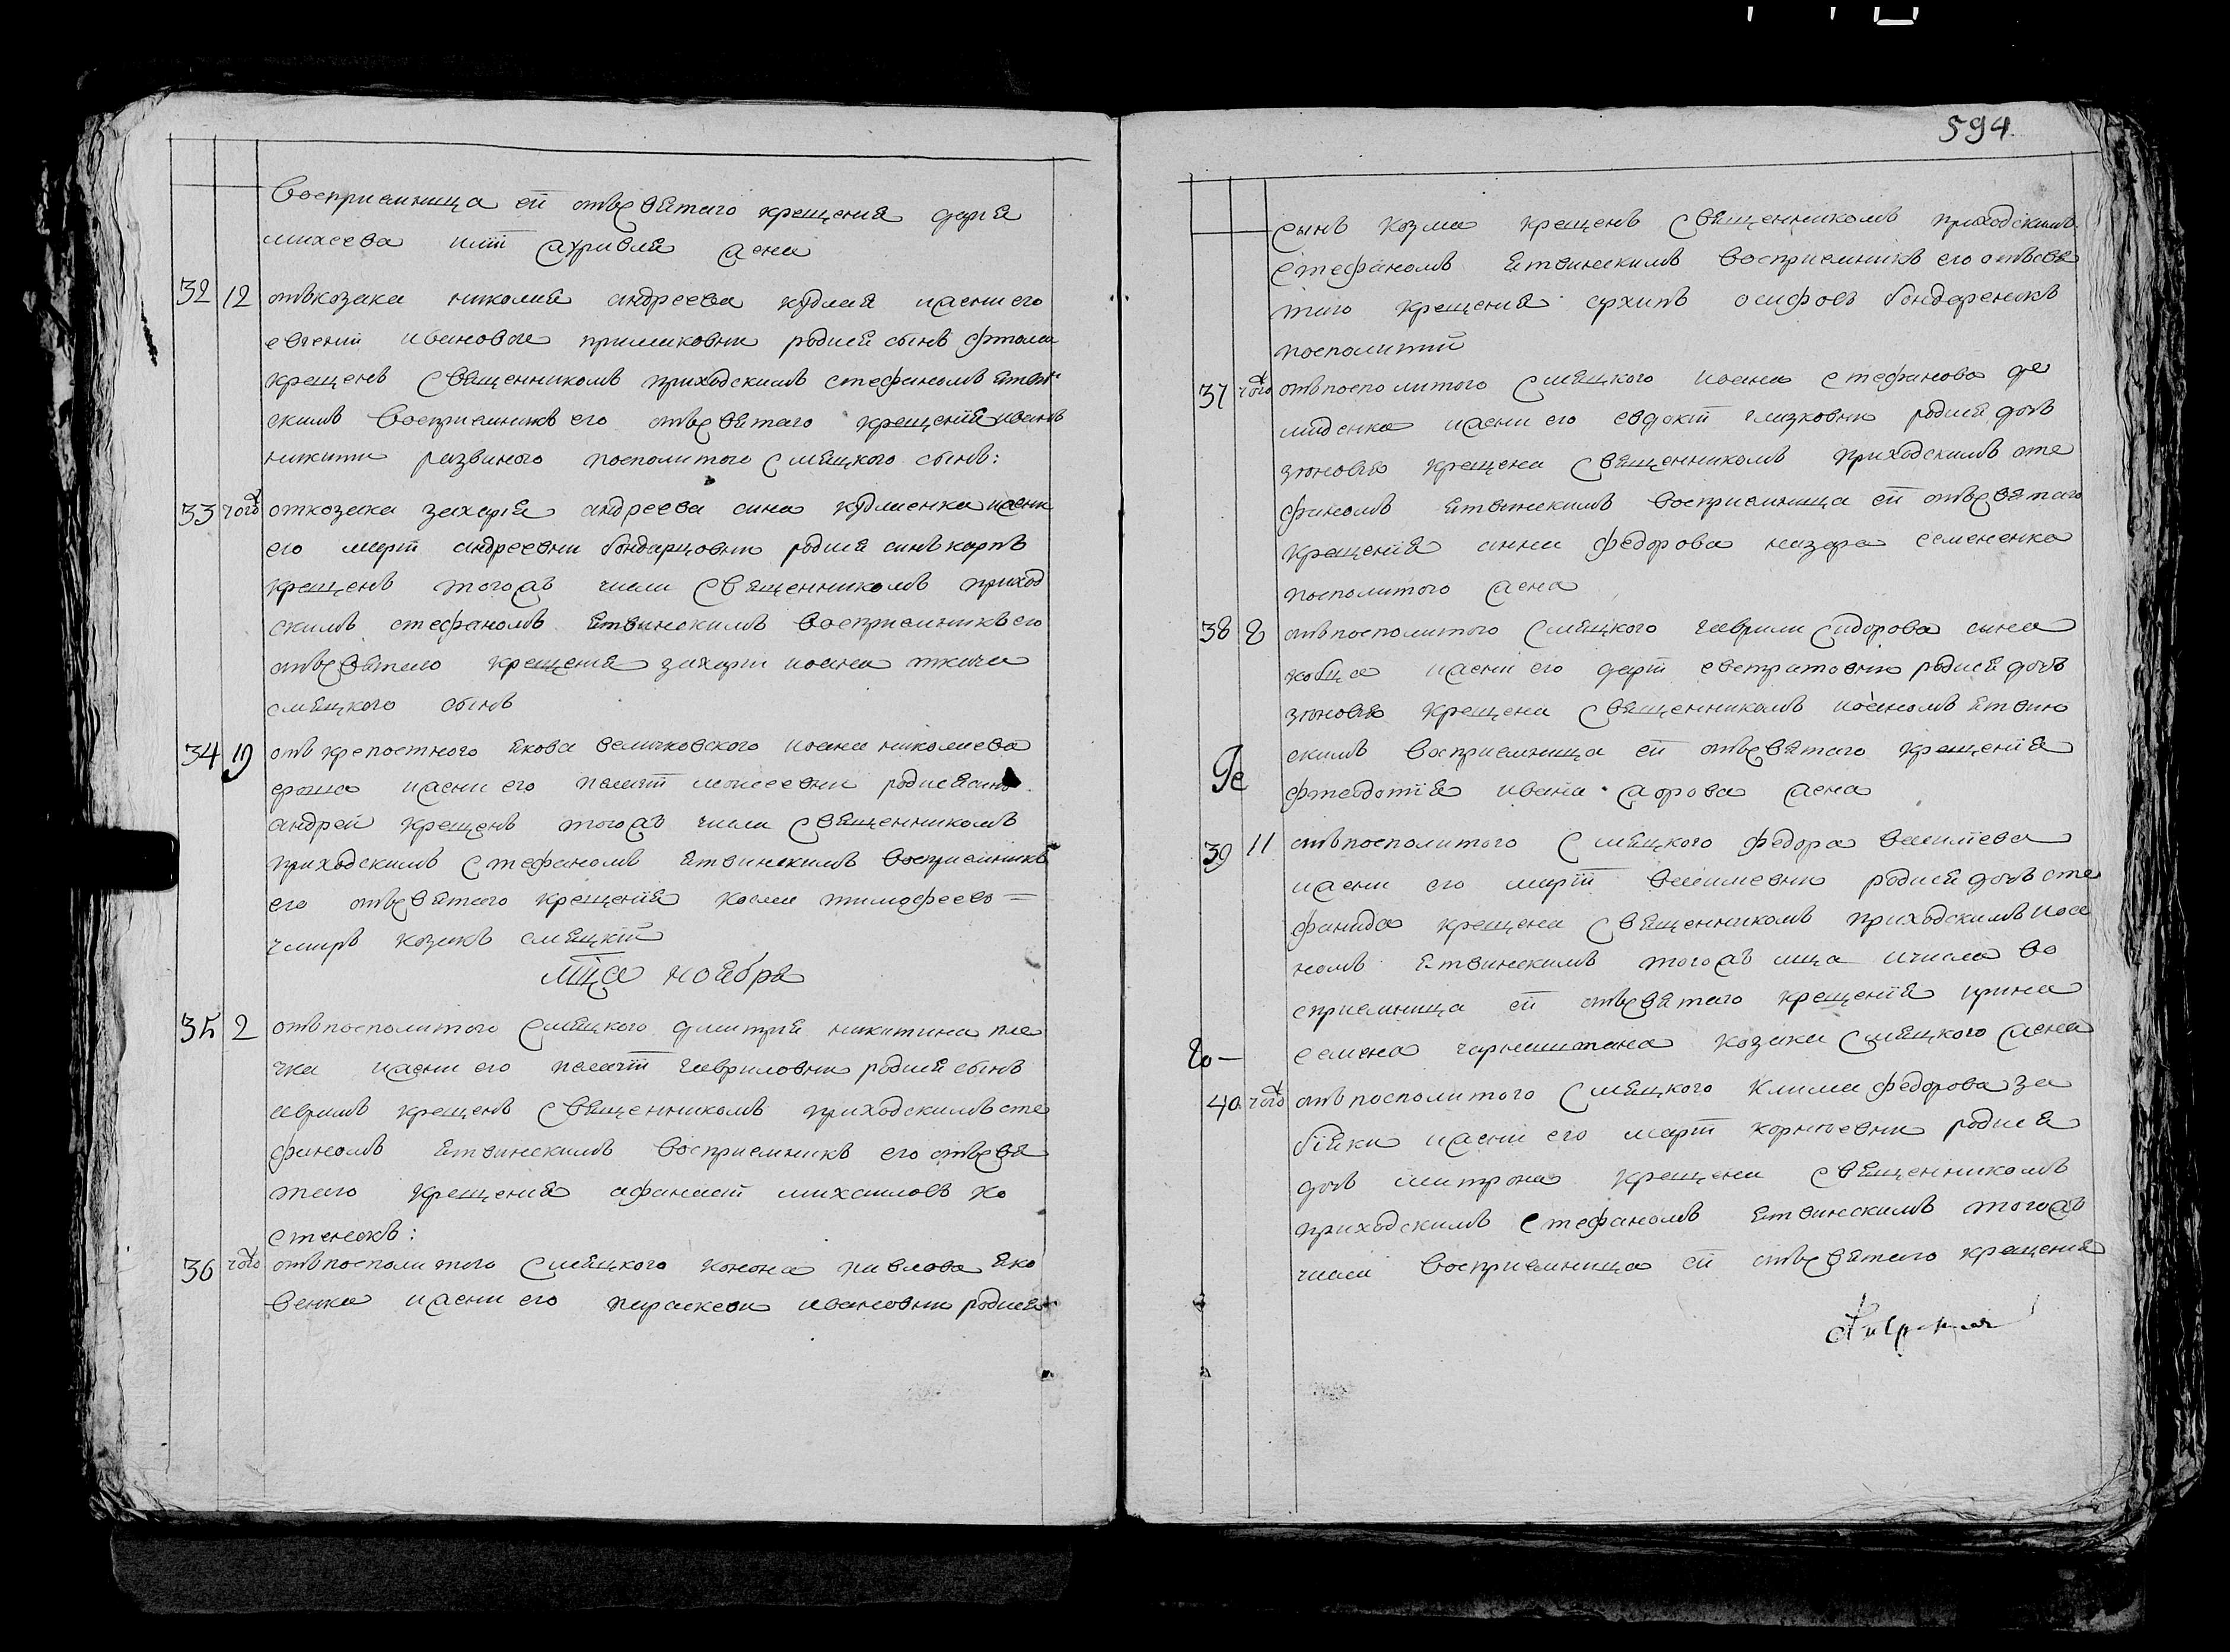 восприемница ей отъ святаго крещения дария
михеева жена
32 12 отъ козака николая андреева кудлая и жени его
евгении ивановое климковни родися сынъ фтома
крещенъ священникомъ приходскимъ стефаномъ
скимъ восприемникъ его отъ святаго крещения иванъ
никити посполитого смяцкого сынъ:
33 того откозака захария андреева сина кудлаенка и жени
его марти андреевни бондарцовни родися синъ карпъ
крещенъ того жъ числа священникомъ приход
скимъ стефаномъ ятвинскимъ восприемникъ его
отъ святаго крещения захари иоана ткача
смяцкого сынъ
34 19 отъ крепостного якова величковского иоана николаева
ероша и жени его пелагии моисеевни родися синъ
андрей крещенъ того жъ числа священникомъ
приходскимъ стефаномъ ятвинскимъ восприемникъ
его отъ святаго крещения косма тимофеевъ =
козакъ смяцкий
мца ноября
35 2 отъ посполитого смяцкого дмитрия никитина пле
чка и жени его пелагии гавриловни родися сынъ
аврамъ крещенъ священникомъ приходскимъ сте
фаномъ ятвинскимъ восприемникъ его отъ свя
таго крещения афанасий михаиловъ ко
стенокъ:
36 того отъ посполитого смяцкого конона павлова яко
венка и жени его параскеви ивановни родися
594.
сынъ козма крещенъ священникомъ приходскимъ
стефаномъ ятвинскимъ восприемникъ его отъ свя
таго крещения архипъ осифовъ бондаренокъ
посполитий
37 того отъ посполитого смяцкого иоана стефанова де
миденка и жени его евдокии глизковни родися дочъ
зтновия крещена священникомъ приходскимъ сте
фаномъ ятвинскимъ восприемница ей отъ святаго
крещения анна федорова назара семененка
посполитого жена
38 8 отъ посполитого смяцкого гаврили сидорова сина
кобца и жени его дарии евстратовни родися дочъ
зтновия крещена священникомъ иоаномъ ятвин
скимъ восприемница ей отъ святаго крещения
фтеодотия ивана жена
39 11 отъ посполитого смяцкого федора василиева
и жени его марии родися дочъ сте
фанида крещена священникомъ приходскимъ иоа
номъ ятвинскимъ того жъ мца и числа во
сприемница ей отъ святаго крещения ирина
семена козака смяцкого жена
40 того отъ посполитого смяцкого клима федорова за
бияки и жени его марти корнеевни родися
дочъ митрона крещена священникомъ
приходскимъ стефаномъ ятвинскимъ того жъ
числа восприемница ей отъ святаго крещения